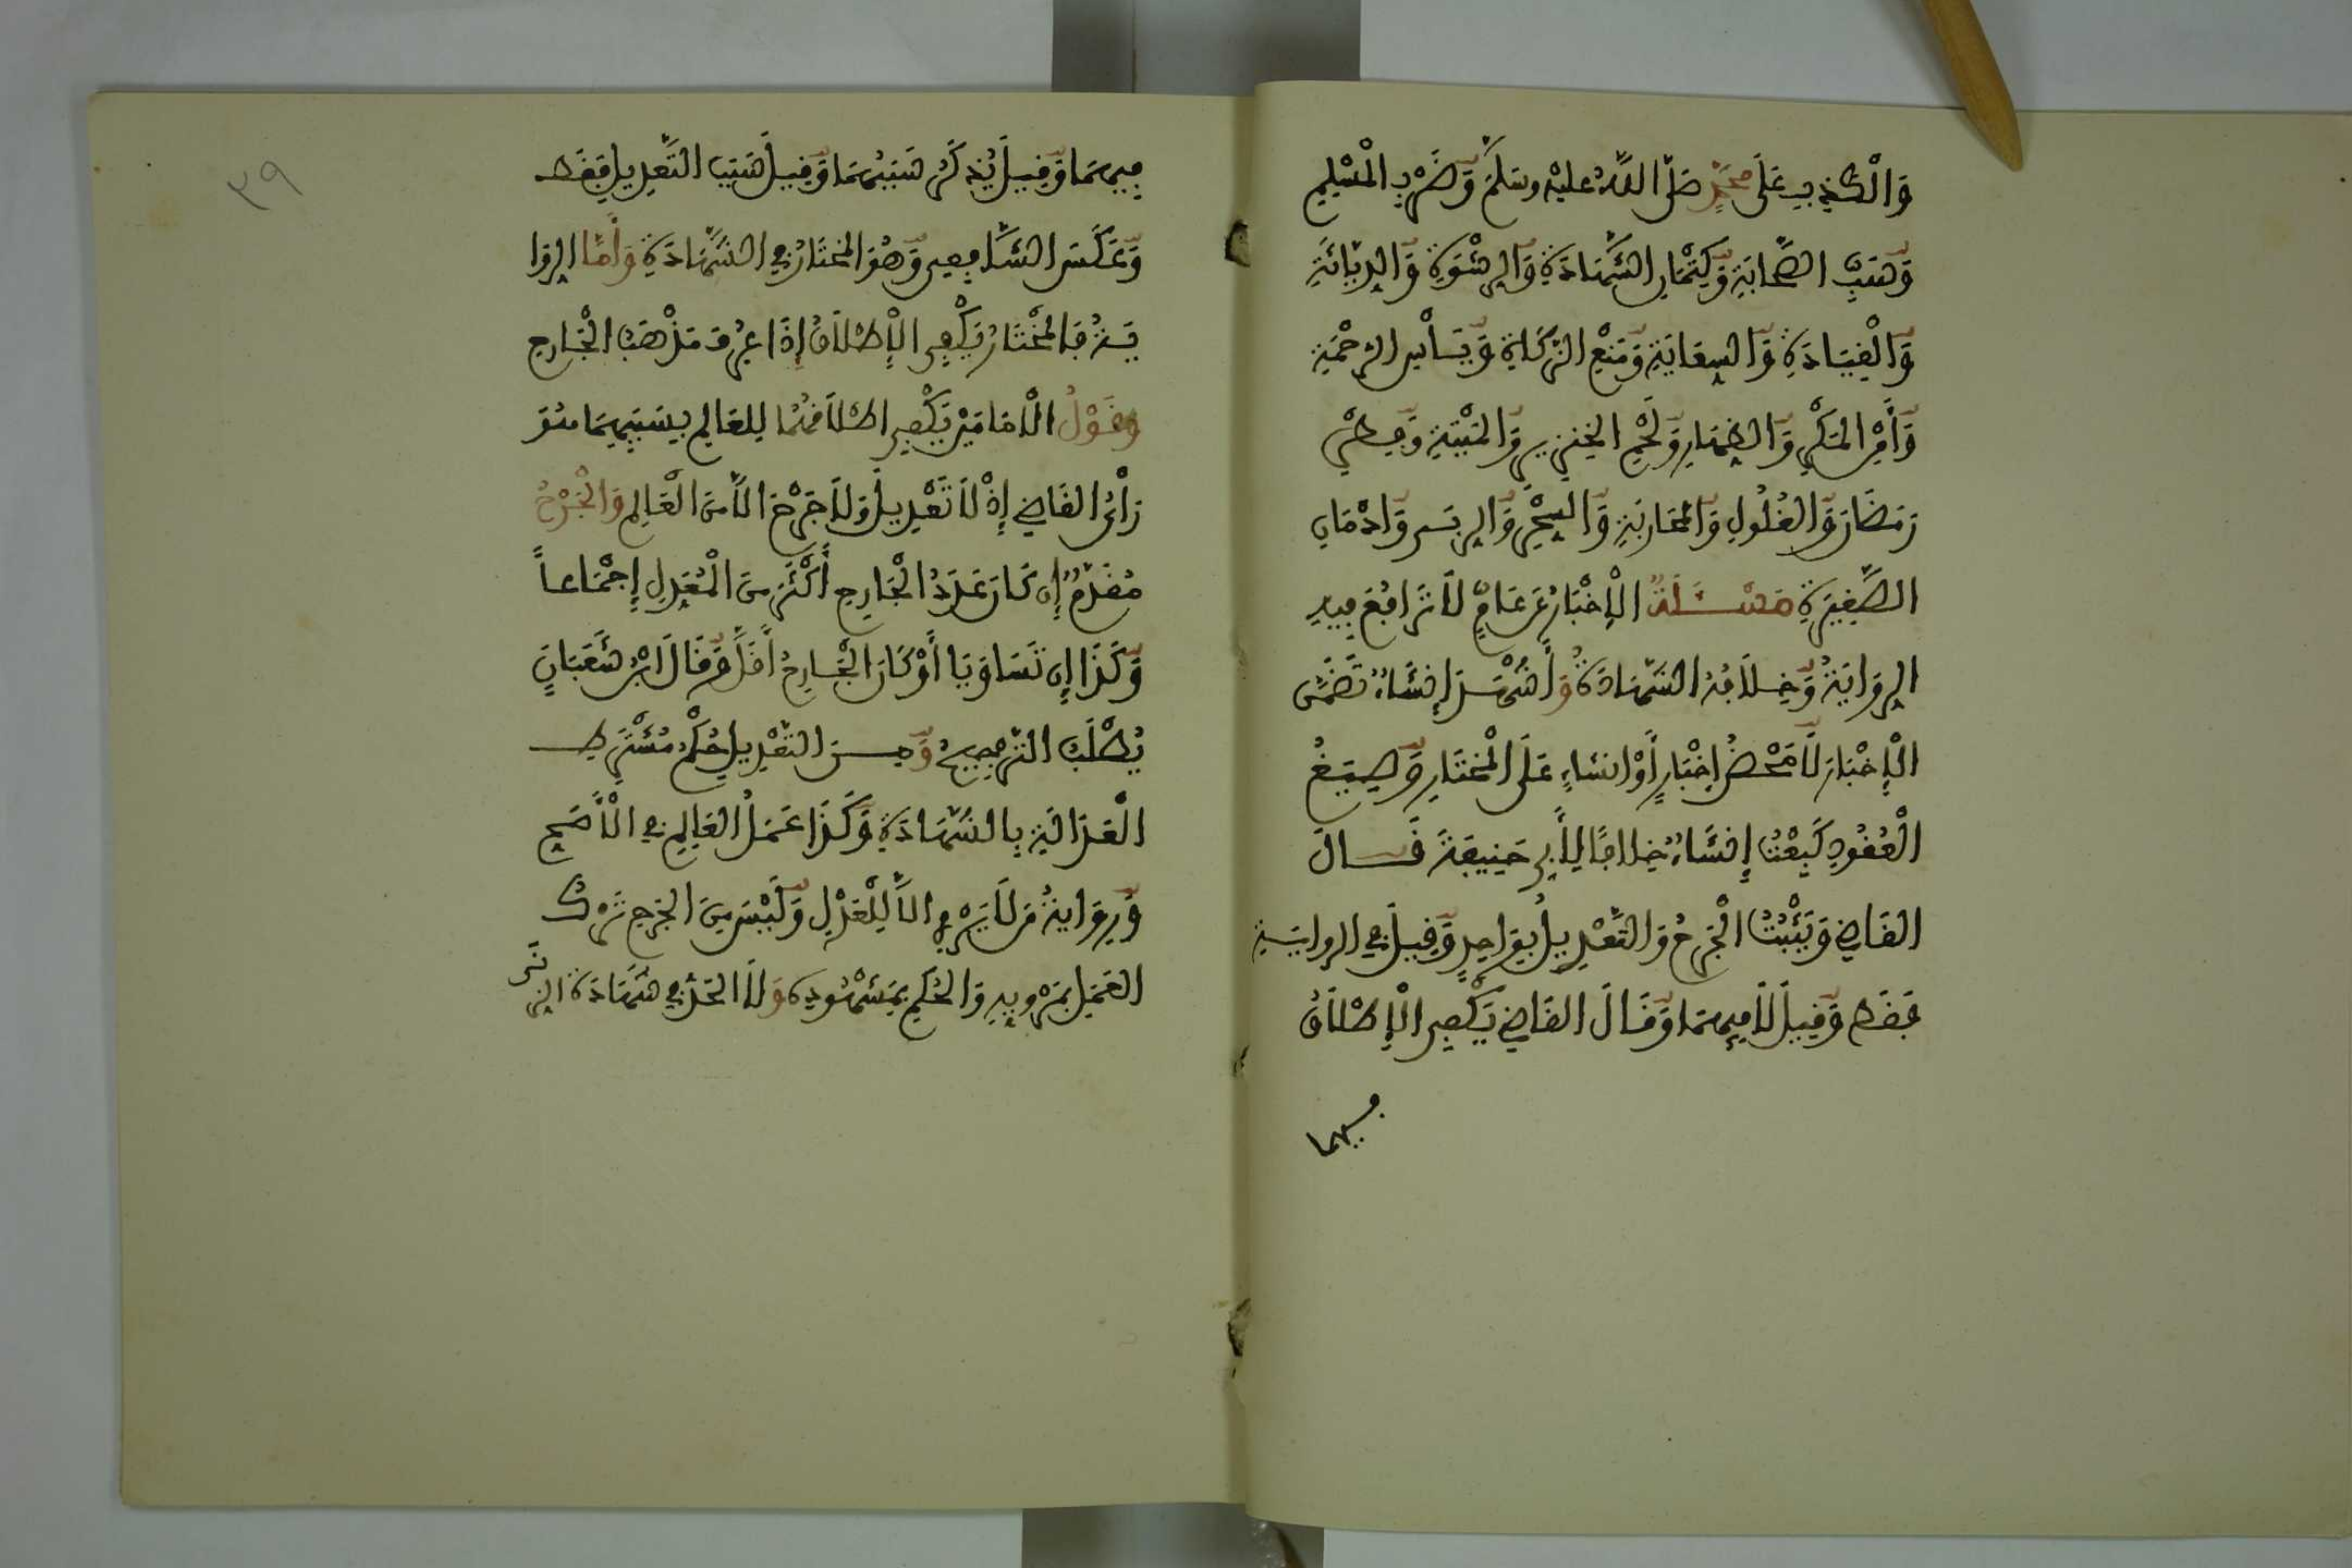 وَالْكَذِبِ عَلَى مُحَمَّدٍ صَلَّى اللَّهُ عليْهِ وسَلَّمَ وَضَرْبِ الْمُسْلِمِ
وَسَبِّ الصَّحَابَةِ وَكِتْمَانِ الشَّهَادَةِ وَالرِّشْوَةِ وَالدِّيَاثَةِ
وَالْقِيَادَةِ وَالسِّعَايَةِ وَمَنْعِ الزَّكَاةِ وَيَأْسِ الرَّحْمَةِ
وَأَمْنِ الْمَكْرِ وَالظِّهَارِ وَلَحْمِ الخِنْزِيرِ وَالْمَيْتَةِ وَفِطْرِ
رَمَضَانَ وَالْغُلُولِ وَالْمُحَارَبَةِ وَالسِّحْرِ وَالرِّبَى وَإِدْمَانِ
الصَّغِيرَةِ مَسْئَلَةٌ الْإِخْبَارُ عَنْ عَامٍّ لَا تَرَافُعَ فِيهِ
الرِّوَايَةُ وَخِلَافُهُ الشَّهَادَةُ وَأَشْهَدُ إِنْشَاءٌ تَضَمَّنَ
الْإِخْبَارَ لَا مَحْضُ إِخْبَارٍ أَوْ إِنْشَاءٍ عَلَى الْمُخْتَارِ وَصِيَغُ
الْعُقُودِ كَبِعْتُ إِنْشَاءٌ خِلَافًا لِأَبِي حَنِيفَةَ قَالَ
القَاضِي وَيَثْبُتُ الْجَرْحُ وَالتَّعْدِيلُ بِوَاحِدٍ وَقِيلَ فِي الرِّوَايَةِ
فَقَطْ وَقِيلَ لَا فِيهِمَا وَقَالَ القَاضِي يَكْفِي الْإِطْلَاقُ
فيهما
٣٩
فِيهِمَا وَقِيلَ يُذْكَرُ سَبَبُهُمَا وَقِيلَ سَبَبُ التَّعْدِيلِ فَقَطْ
وَعَكَسَ الشَّافِعِي وَهُوَ الْمُخْتَارُ فِي الشَّهَادَةِ وَأَمَّا الرِّوَا
يَةُ فَالْمُخْتَارُ يَكْفِي الْإِطْلَاقُ إِذَا عُرِفَ مَذْهَبُ الْجَارِحِ
وَقَوْلُ الْإِمَامَيْنِ يَكْفِي إِطْلَاقُهُمَا لِلْعَالِمِ بِسَبَبِهِمَا هُوَ
رَأْيُ القَاضِي إِذْ لَا تَعْدِيلَ وَلَا جَرْحَ إِلَّا مِنَ الْعَالِمِ وَالْجَرْحُ
مُقَدَّمٌ إِنْ كَانَ عَدَدُ الْجَارِحِ أَكْثَرَ مِنَ الْمُعَدِّلِ إِجْمَاعاً
وَكَذَا إِنْ تَسَاوَيَا أَوْ كَانَ الْجَارِحُ أَقَلَّ وَقَالَ ابْنُ شَعْبَانَ
يُطْلَبُ التَّرْجِيحُ وَمِنَ التَّعْدِيلِ حُكْمُ مُشْتَرِطِ
الْعَدَالَةِ بِالشَّهَادَةِ وَكَذَا عَمَلُ الْعَالِمِ فِي الْأَصَحِّ
وَرِوَايَةُ مَنْ لَا يَرْوِي إِلَّا لِلْعَدْلِ وَلَيْسَ مِنَ الْجَرْحِ تَرْكُ
الْعَمَلِ بِمَرْوِيِّهِ وَالْحُكْمِ بِمَشْهُودِهِ وَلَا الْحَدُّ فِي شَهَادَةِ الزِّنَى